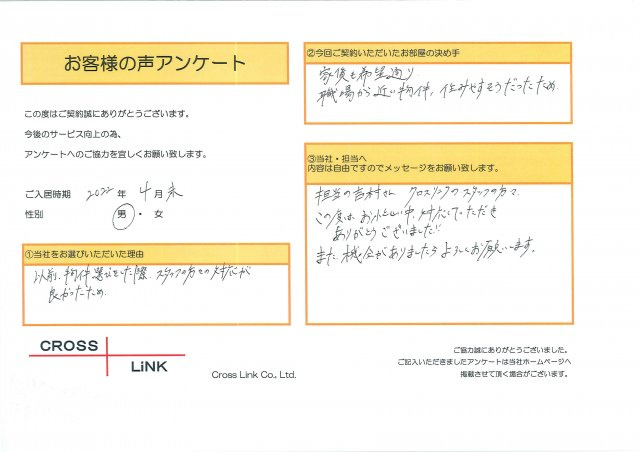 お客様の声アンケート
この度はご契約誠にありがとうございます。
今後のサービス向上の為、
アンケートへのご協力を宜しくお願い致します。
ご入居時期 2022年 4月末
性別 男・女
①当社をお選びいただいた理由
以前、物件選びをした際、スタッフの方々の対応が
良かったため。
CROSS
LiNK
Cross Link Co., Ltd.
②今回ご契約いただいたお部屋の決め手
家賃も希望通り
職場から近い物件、住みやすそうだったため
③当社・担当へ
内容は自由ですのでメッセージをお願い致します。
担当の吉村さん クロスリンクのスタッフの方々
この度はお忙しい中、対応していただき
ありがとうございました!!
また、機会がありましたらよろしくお願います。
ご協力誠にありがとうございました。
ご記入いただきましたアンケートは当社ホームページへ
掲載させて頂く場合がございます。